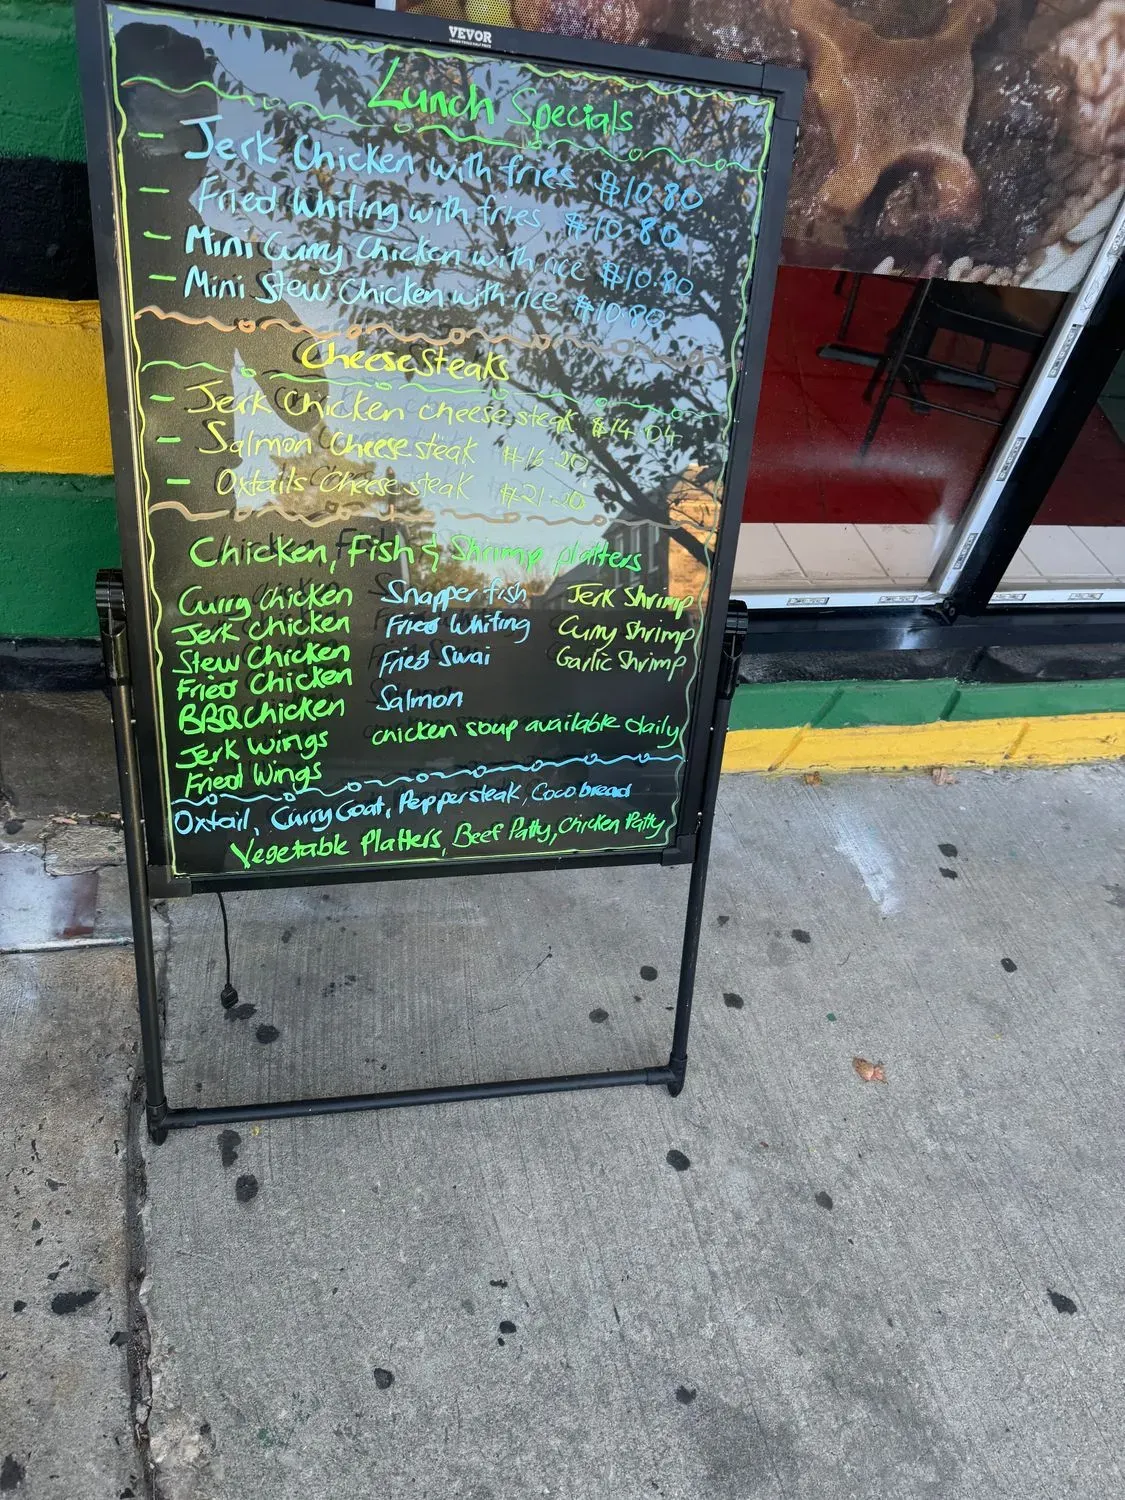 VEVOR
Lunch Specials
- Jerk Chicken with fries $10.80
- Fried Whiting with fries $10.80
- Mini Curry Chicken with rice $10.80
- Mini Stew Chicken with rice $10.80
Cheesesteaks
- Jerk Chicken cheesesteak $14.04
- Salmon Cheesesteak $16.20
- Oxtails Cheesesteak $21.20
Chicken, Fish & Shrimp platters
Curry Chicken Snapper fish Jerk Shrimp
Jerk Chicken Fried Whiting Curry Shrimp
Stew Chicken Fried Swai Garlic Shrimp
Fried Chicken
BBQ chicken Salmon
Jerk Wings chicken soup available daily
Fried Wings
Oxtail, Curry Goat, Peppersteak, Coco bread
Vegetable Platters, Beef Patty, Chicken Patty